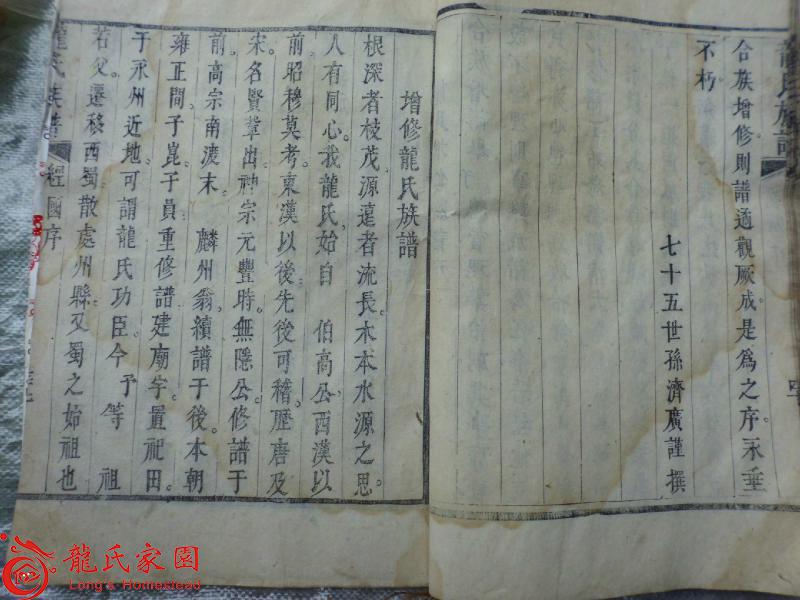 龍氏族譜
合族增修則譜遹觀厥成是為之序永垂
不朽
七十五世孫濟廣謹撰
增修龍氏族譜
根深者枝茂源遠者流長木本水源之思
人有同心我龍氏始自 伯高公西漢以
前昭穆莫考東漢以後先後可稽歷唐及
宋名賢輩出神宗元豐時無隱公修譜于
前高宗南渡末 麟州翁續譜于後本朝
雍正間子崑子員重修譜建廟宇置祀田
于永州近地可謂龍氏功臣今予等 祖
若父遷移西蜀散處州縣又蜀之始祖也
龍氏族譜
經國序
龍氏家園
Long's Homestead